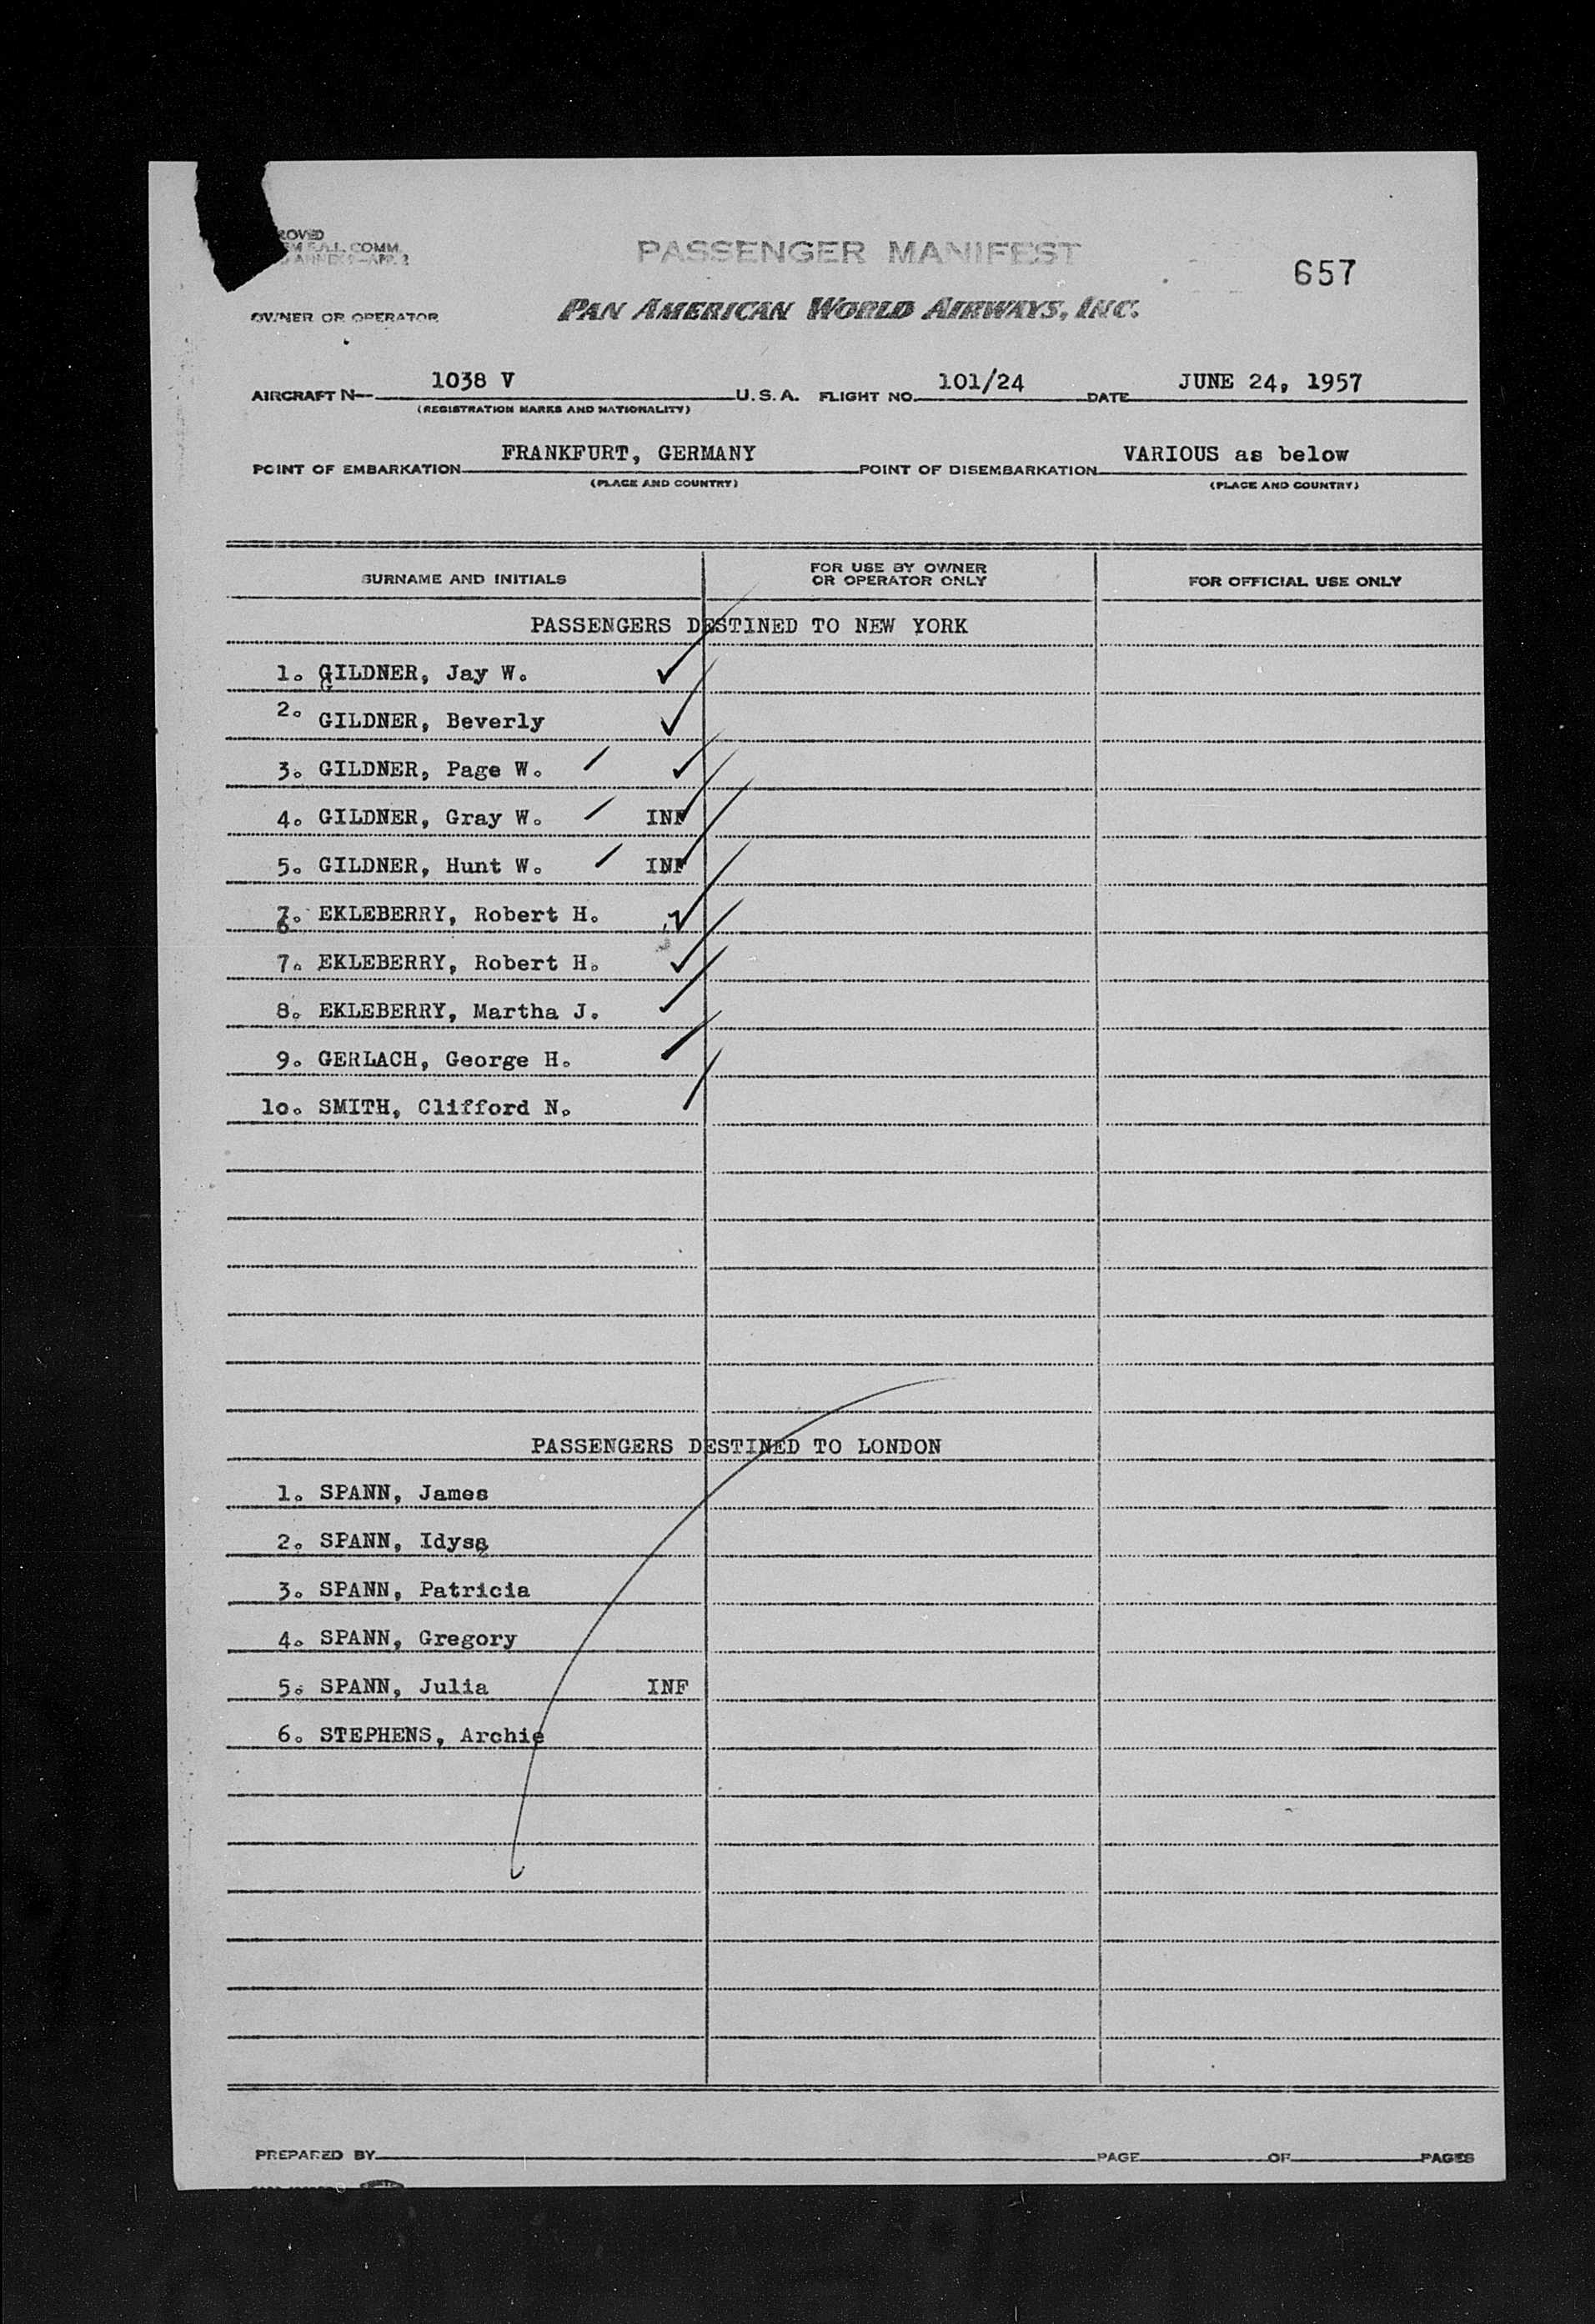 ROVED
F.A.L. COMM.
ANNEX 9—APP. 2
PASSENGER MANIFEST
657
OWNER OR OPERATOR
PAN AMERICAN WORLD AIRWAYS, INC.
AIRCRAFT N— 1038 V U.S.A. FLIGHT NO. 101/24 DATE JUNE 24, 1957
(REGISTRATION MARKS AND NATIONALITY)
POINT OF EMBARKATION FRANKFURT, GERMANY POINT OF DISEMBARKATION VARIOUS as below
(PLACE AND COUNTRY) (PLACE AND COUNTRY)
SURNAME AND INITIALS FOR USE BY OWNER OR OPERATOR ONLY FOR OFFICIAL USE ONLY
PASSENGERS DESTINED TO NEW YORK
1. GILDNER, Jay W.
2. GILDNER, Beverly
3. GILDNER, Page W.
4. GILDNER, Gray W. INF
5. GILDNER, Hunt W. INF
6. EKLEBERRY, Robert H.
7. EKLEBERRY, Robert H.
8. EKLEBERRY, Martha J.
9. GERLACH, George H.
lo. SMITH, Clifford N.
PASSENGERS DESTINED TO LONDON
1. SPANN, James
2. SPANN,
3. SPANN, Patricia
4. SPANN, Gregory
5. SPANN, Julia INF
6. STEPHENS, Archie
PREPARED BY PAGE OF PAGES